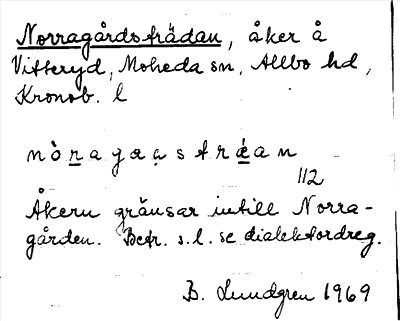 Norragårdsträdan, åker å
Vitteryd, Moheda sn, Allbo hd,
Kronob. l
112
Åkern gränsar intill Norra-
gården. Betr. s.l. se dialektordreg.
B. Lundgren 1969